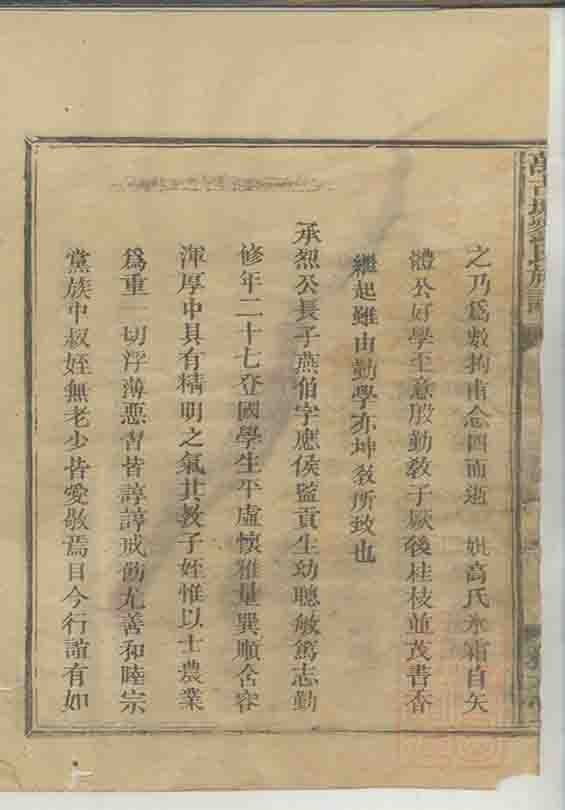 之乃爲數拘甫念四而逝 妣高氏氷霜自矢
體公好學至意殷勤敎子厥後桂枝並茂書香
繼起難由勤學亦坤敎所致也
承烈公長子燕伯字應侯監貢生幼聰敏篤志勤
修年二十七登國學生平虛懷雅量巽順含容
渾厚中具有精明之氣其敎子姪惟以士農業
爲重一切浮薄惡習皆諄諄戒飭尤善和睦宗
黨族中叔姪無老少皆愛敬焉目今行誼有如